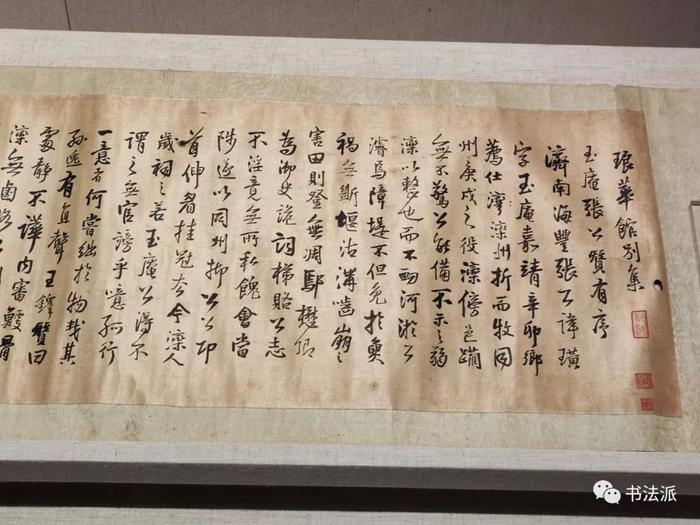 琅華館別集
玉庵張公贊有序
濟南海豐張公諱璜
字玉庵嘉靖辛卯鄉
薦仕灤灤州折而牧同
州庚戌之役灤傍邑躪
無不驚公能備不示之弱
灤以整也而不河公
濬為障堤不但免於魚
禍無斷堰沽溝嚙崩之
害田則登無凋鄢樊卿
為御史詭詞梯賂公志
不淫竟無所私餽會當
陟遂以同州抑公公印
首伸眉挂冠去今灤人
歲祠之若玉庵公得不
謂之無官謗乎噫孤行
一意者何嘗絀於物哉其
孫遂有直聲王鐸贊曰
處靜不譁內審鯁骨
灤無鹵
书法派